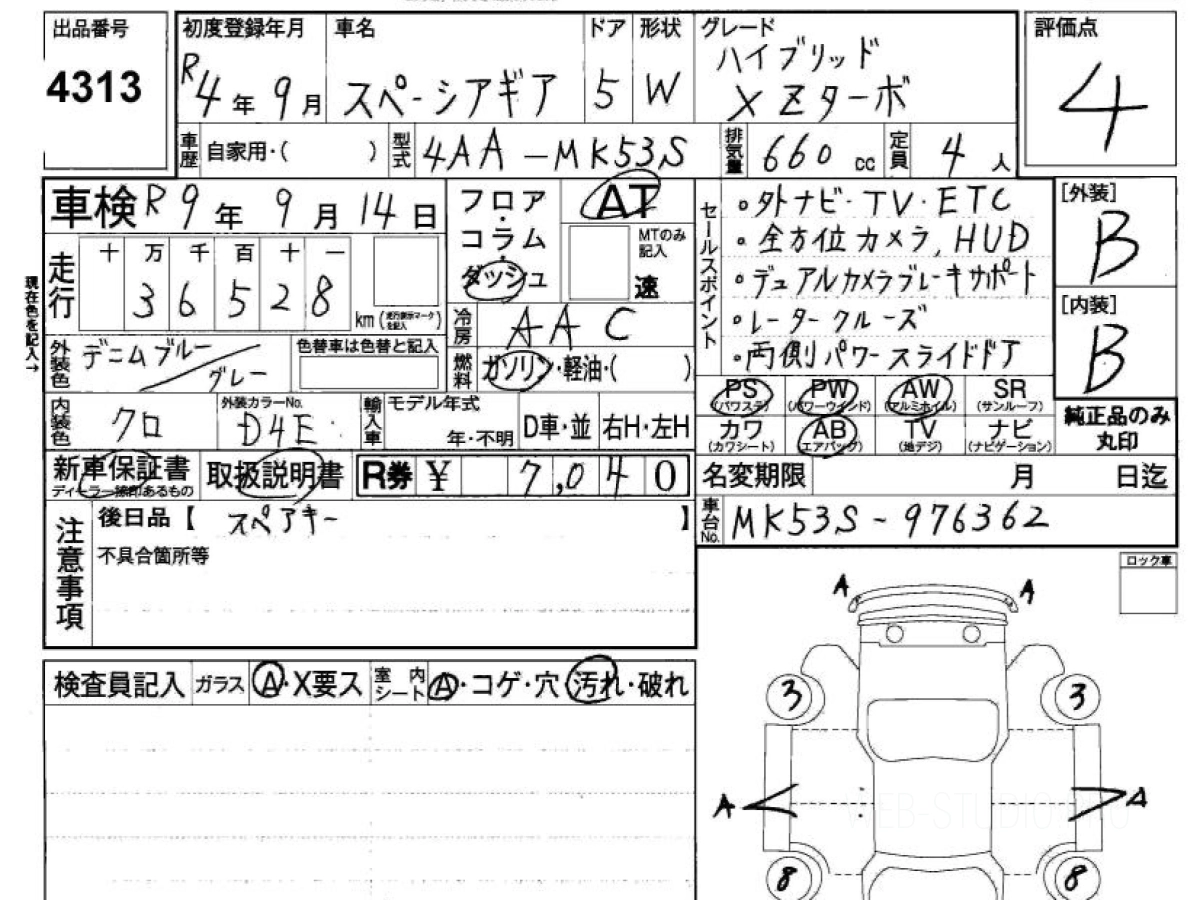 出品番号
4313
初度登録年月
R4年9月
車名
スペーシアギア
ドア
5
形状
W
グレード
ハイブリッド
XZターボ
評価点
4
車歴
自家用・( )
型式
4AA-MK53S
排気量
660cc
定員
4人
車検R9年9月14日
フロア・コラム・ダッシュ
AT
MTのみ記入
速
セールスポイント
・外ナビ・TV・ETC
・全方位カメラ,HUD
・デュアルカメラブレーキサポート
・レーダークルーズ
・両側パワースライドドア
[外装]
B
[内装]
B
現在色を記入→
走行
十万千百十一
36528
km(走行表示マークを記入)
冷房
AAC
燃料
ガソリン・軽油・( )
外装色
デニムブルー/グレー
色替車は色替と記入
内装色
クロ
外装カラーNo.
D4E
輸入車
モデル年式
年・不明
D車・並
右H・左H
PS(パワステ)
PW(パワーウインド)
AW(アルミホイル)
SR(サンルーフ)
カワ(カワシート)
AB(エアバッグ)
TV(地デジ)
ナビ(ナビゲーション)
純正品のみ丸印
新車保証書
ディーラー捺印あるもの
取扱説明書
R券 ¥ 7,040
名変期限 月 日迄
車台No.
MK53S-976362
注意事項
後日品【 スペアキー 】
不具合箇所等
ロック車
検査員記入
ガラス
A・X要ス
室内シート
A・コゲ・穴・汚れ・破れ
A A
3 3
A A
WEB-STUDIO.PRO
8 8